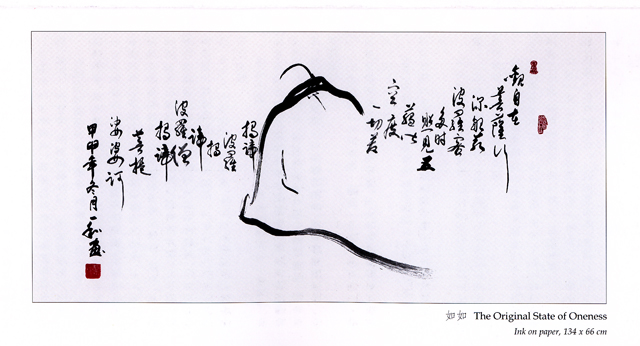 觀自在
菩薩行
深般若
波羅蜜
多時
照見五
蘊皆
空度
一切苦
揭諦
波羅
揭
諦
波羅僧
揭諦
菩提
娑婆訶
甲申年冬月一
如如 The Original State of Oneness
Ink on paper, 134 x 66 cm